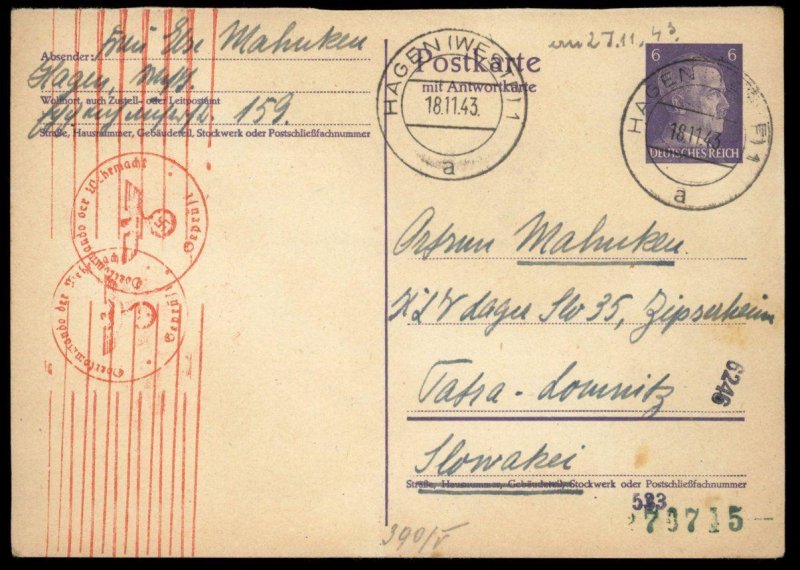 Absender: Frau Else Mahnken
Hagen, Westf.
Wohnort, auch Zustell- oder Leitpostamt
159.
Straße, Hausnummer, Gebäudeteil, Stockwerk oder Postschließfachnummer
Postkarte
mit Antwortkarte
HAGEN (WESTF) 1
18.11.43.
a
27.11.43.
6 6
DEUTSCHES REICH
HAGEN
18.11.43
a
Oberkommando der Wehrmacht
Geprüft
Oberkommando der Wehrmacht
Geprüft
Ortrun Mahnken.
KLV Lager Slo 35, Zipserheim
Tatra-Lomnitz
6246
Slowakei
Straße, Hausnummer, Gebäudeteil, Stockwerk oder Postschließfachnummer
533
390/V